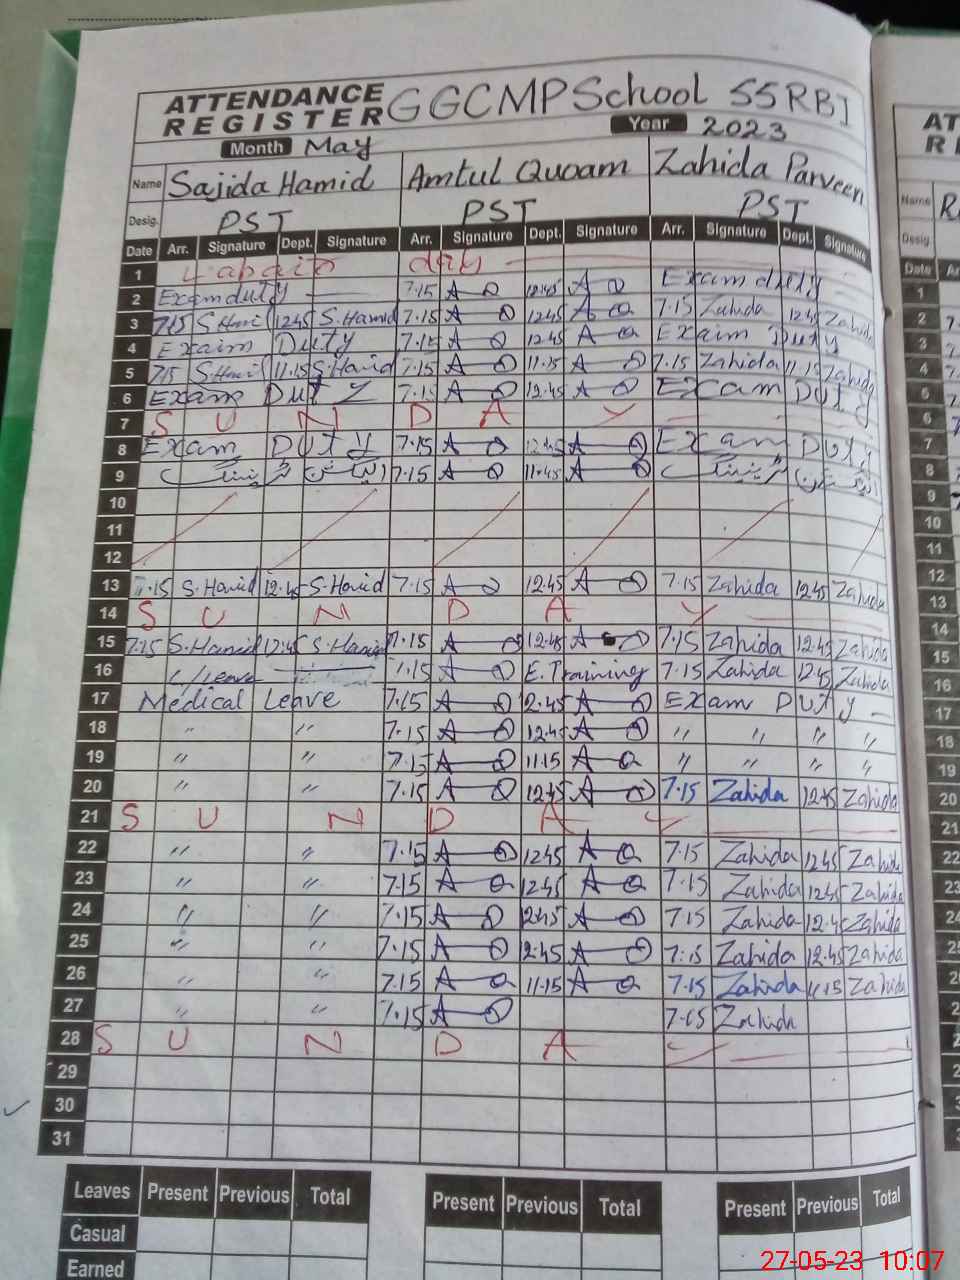 ATTENDANCE REGISTER GGCMPSchool 55RBI
Month May Year 2023
Name Sajida Hamid Amtul Quoam Zahida Parveen
Desig. PST PST PST
Date Arr. Signature Dept. Signature Arr. Signature Dept. Signature Arr. Signature Dept. Signature
1 day
2 Exam duty 7.15 A 12.45 A Exam duty
3 7.15 12.45 S.Hamid 7.15 A 12.45 A 7.15 Zahida 12.45 Zahida
4 Exaim Duty 7.15 A 12.45 A Exaim Duty
5 7.15 11.15 S.Hamid 7.15 A 11.15 A 7.15 Zahida 11.15 Zahida
6 Exam Duty 7.15 A 12.45 A Exam Duty
7 S U N D A Y
8 Exam Duty 7.15 A 12.45 A Exam Duty
9 7.15 A 11.45 A
10
11
12
13 7.15 S.Hamid 12.45 S.Hamid 7.15 A 12.45 A 7.15 Zahida 12.45 Zahida
14 S U N D A Y
15 7.15 S.Hamid 12.45 S.Hamid 7.15 A 12.45 A 7.15 Zahida 12.45 Zahida
16 C/leave 7.15 A E.Training 7.15 Zahida 12.45 Zahida
17 Medical Leave 7.15 A 12.45 A Exam Duty
18 〃 〃 7.15 A 12.45 A 〃 〃 〃 〃
19 〃 〃 7.15 A 11.15 A 〃 〃 〃 〃
20 〃 〃 7.15 A 12.45 A 7.15 Zahida 12.45 Zahida
21 S U N D A Y
22 〃 〃 7.15 A 12.45 A 7.15 Zahida 12.45 Zahida
23 〃 〃 7.15 A 12.45 A 7.15 Zahida 12.45 Zahida
24 〃 〃 7.15 A 12.45 A 7.15 Zahida 12.45 Zahida
25 〃 〃 7.15 A 12.45 A 7.15 Zahida 12.45 Zahida
26 〃 〃 7.15 A 11.15 A 7.15 Zahida 11.15 Zahida
27 〃 〃 7.15 A 7.15 Zahida
28 S U N D A Y
29
30
31
Leaves Present Previous Total Present Previous Total Present Previous Total
Casual
Earned
27-05-23 10:07